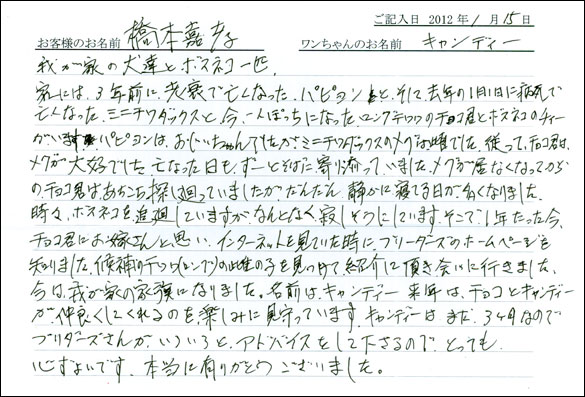 ご記入日 2012年 1月 15日
お客様のお名前 橋本嘉孝 ワンちゃんのお名前 キャンディー
我が家の犬達とボスネコ一匹、
家には、3年前に、老衰で亡くなった、パピヨンと、そして去年の1月1日に病気で
亡くなった、ミニチワダックスと、今、一人ぼっちになったロングチワワのチョコ君とボスネコのティー
がいます パピヨンは、おじいちゃんでしたがミニチワダックスのメグは雌でした。従って、チョコ君は、
メグが大好でした。亡なった日も、ずーとそばに寄り添っていました。メグが居なくなってから
の、チョコ君は、あちこち探し廻っていましたが、だんだん静かに寝てる日が多くなりました。
時々、ボスネコを追廻していますが、なんとなく寂しそうにしています。そこで、1年たった今、
チョコ君にお嫁さんと思い、インターネットを見ていた時に、ブリーダーズのホームページを
知りました。候補のチワワ(ロング)の雌の子を見つけて紹介して頂き会いに行きました、
今は、我が家の家族になりました。名前は、キャンディー 来年は、チョコとキャンディー
が、仲良くしてくれるのを、楽しみに見守っています。キャンディーはまだ、3ヶ月なので
ブリーダーズさんが、いろいろと、アドバイスをして下さるので、とっても
心ずよいです、本当に有りがとうございました。